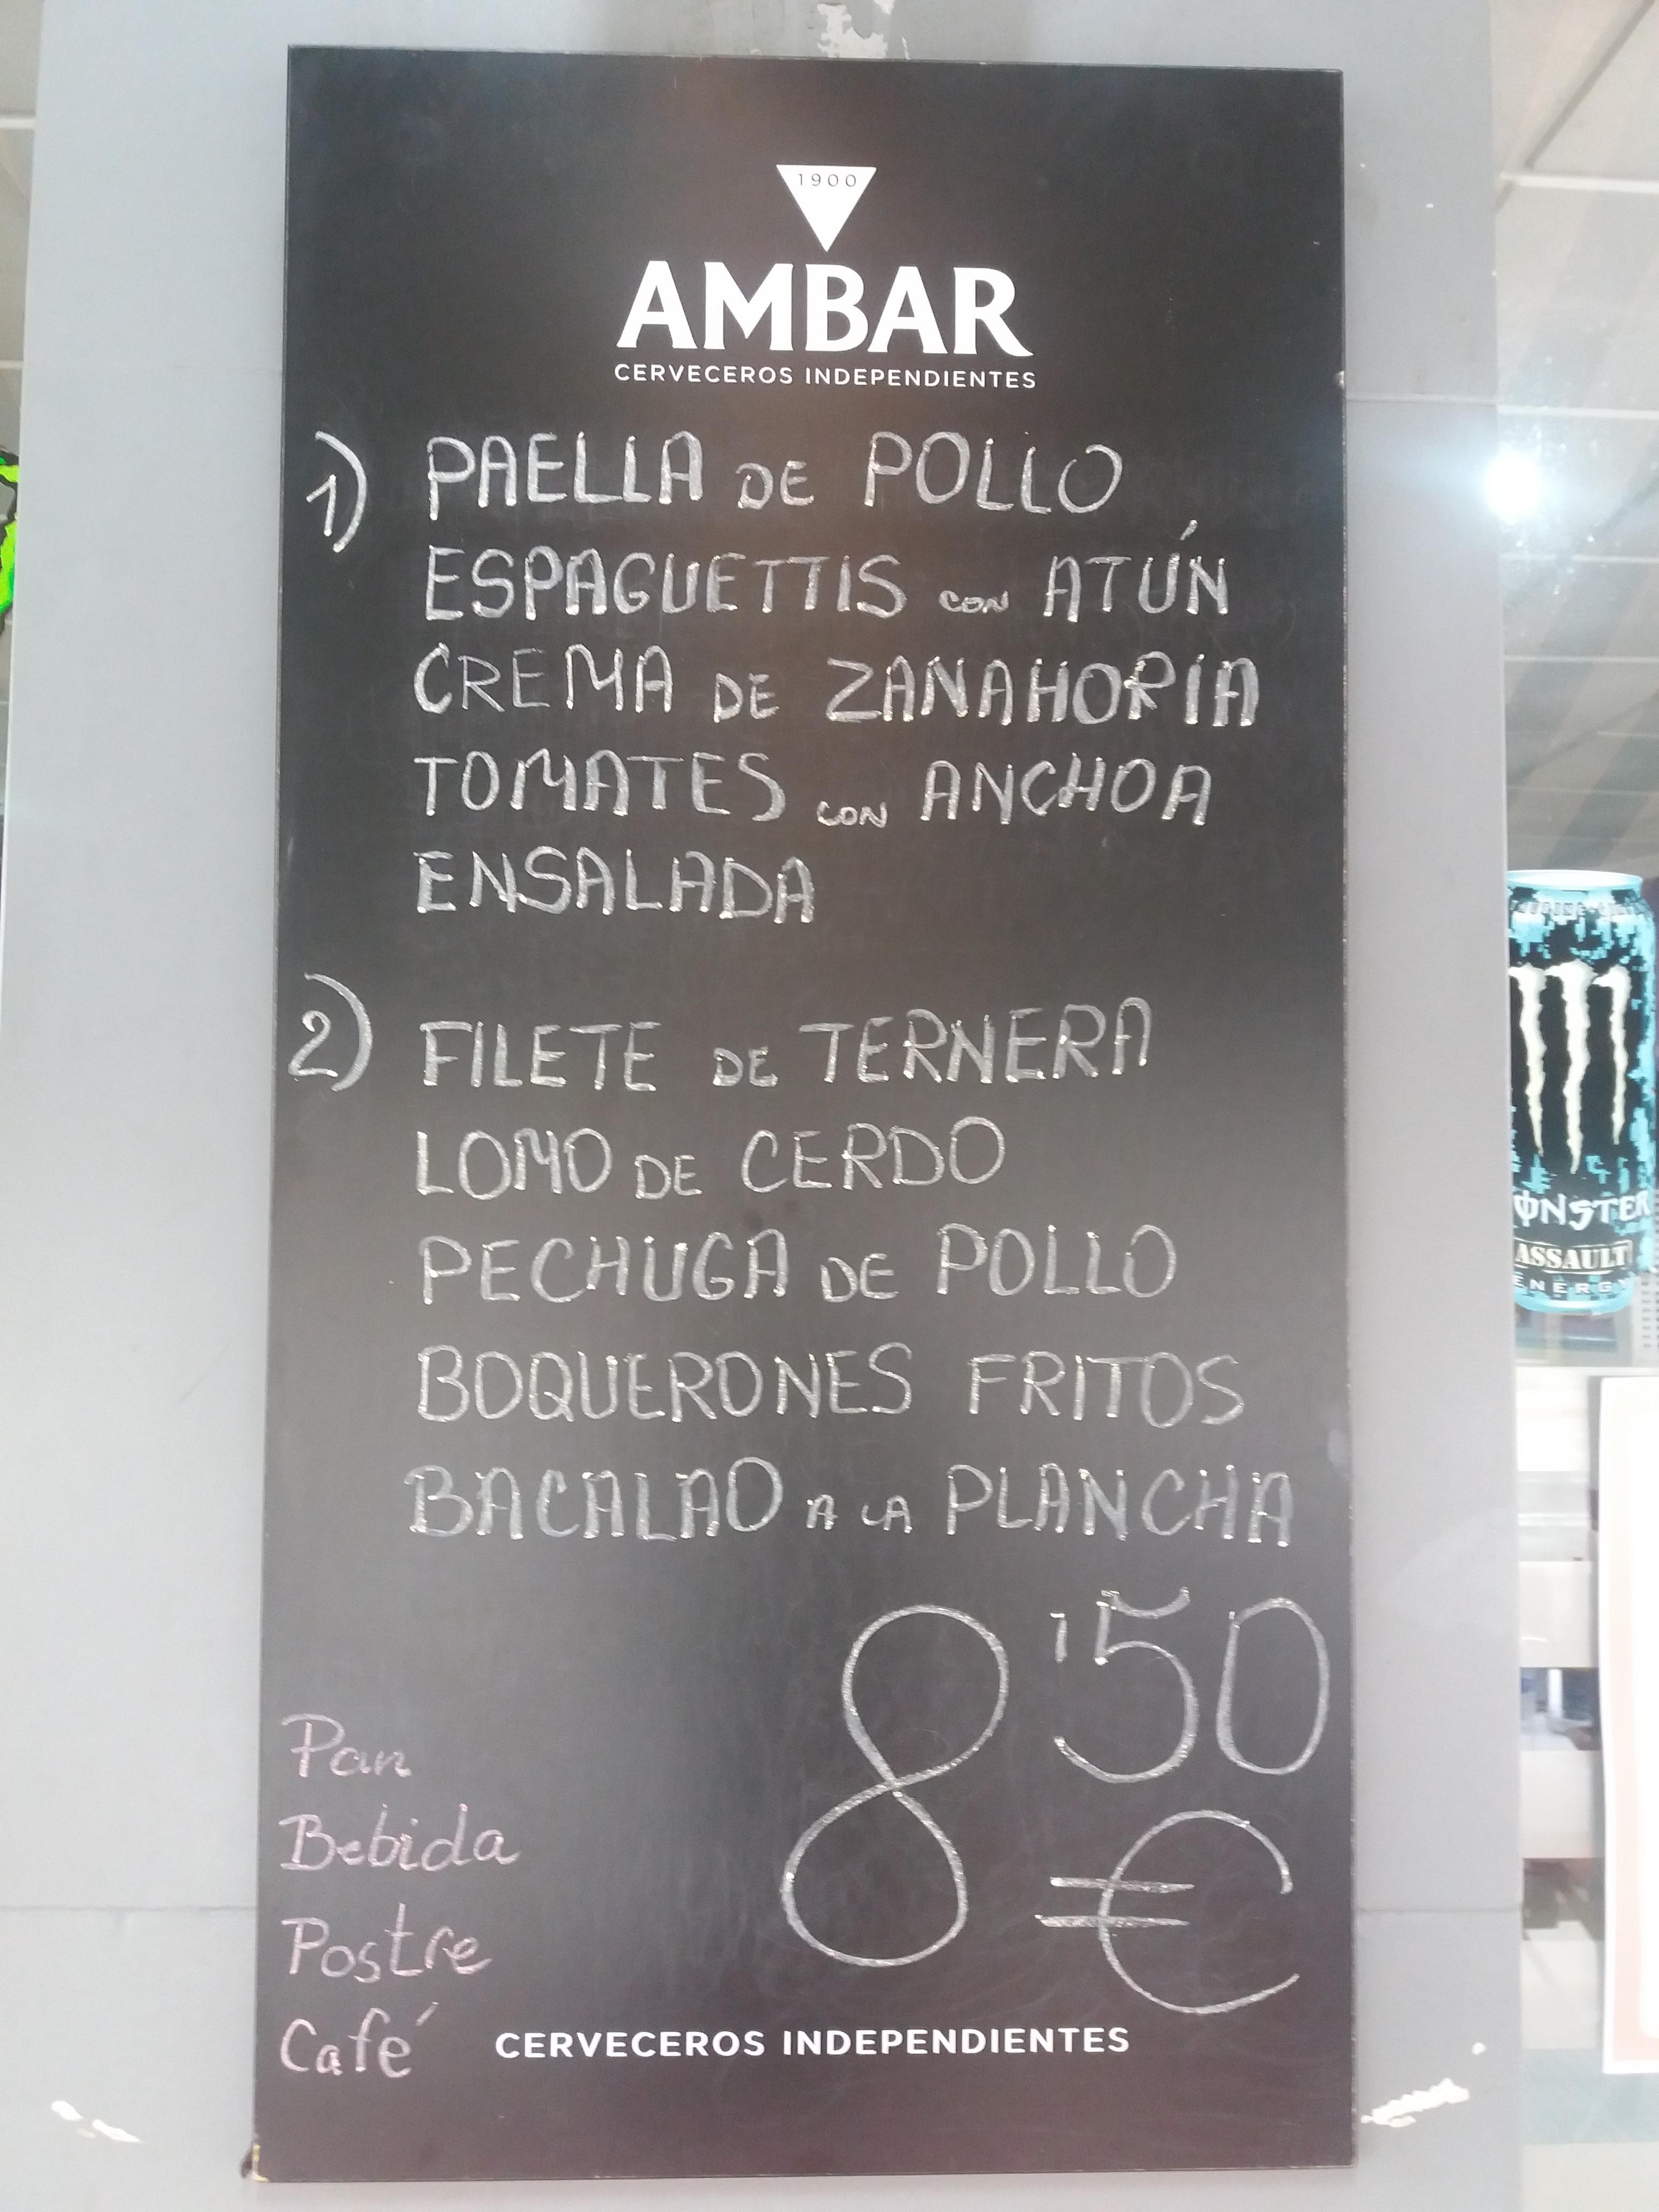 1900
AMBAR
CERVECEROS INDEPENDIENTES
1) PAELLA DE POLLO
ESPAGUETTIS CON ATÚN
CREMA DE ZANAHORIA
TOMATES CON ANCHOA
ENSALADA
2) FILETE DE TERNERA
LOMO DE CERDO
PECHUGA DE POLLO
BOQUERONES FRITOS
BACALAO A LA PLANCHA
8'50
€
Pan
Bebida
Postre
Café
CERVECEROS INDEPENDIENTES
MONSTER
ASSAULT
ENERGY